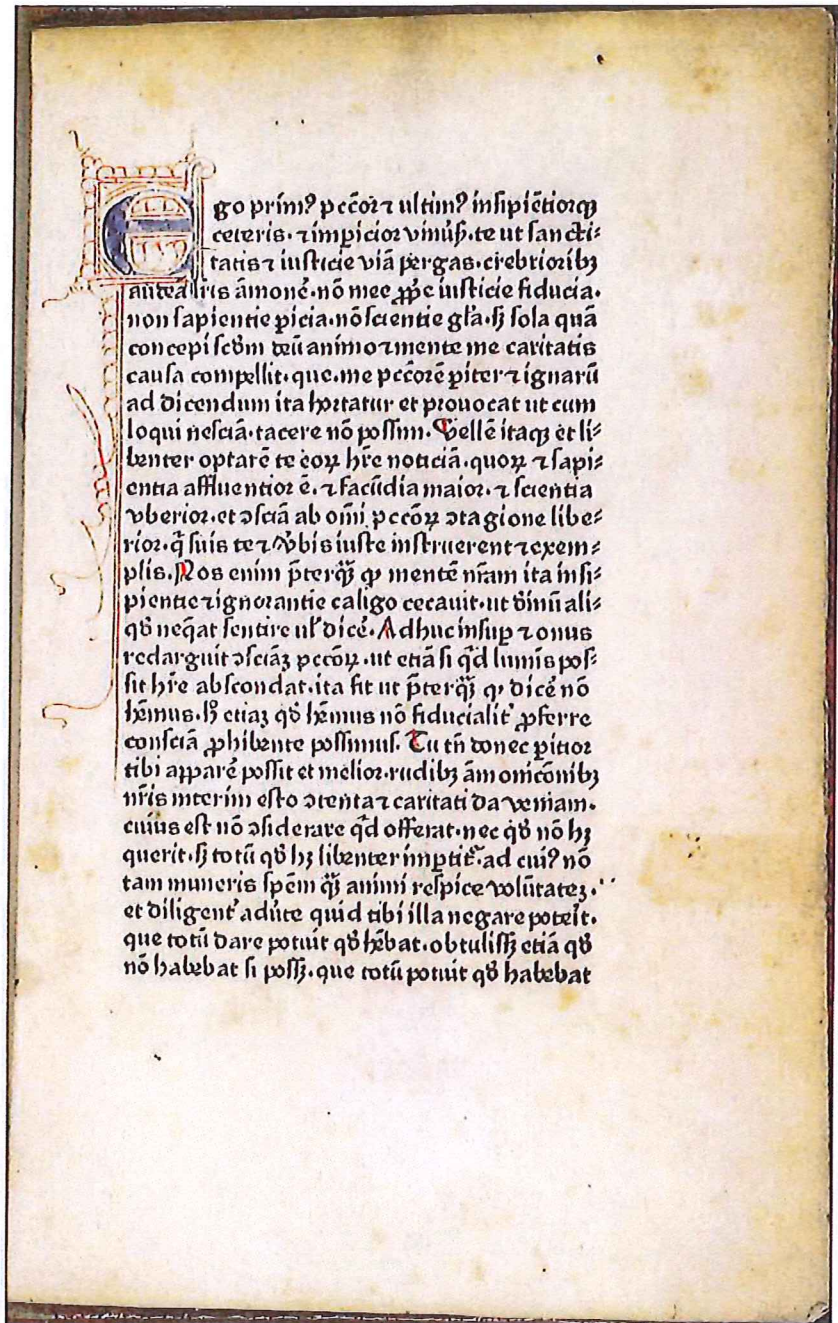 Ego prim⁹ pccõꝝ ⁊ ultim⁹ insipiẽtiorqꝫ
ceteris·⁊ imꝑicior te ut sancti⸗
tatis ⁊ iusticie viã pergas·crebrioribꝫ
aures ãmonẽ·nõ mee ꝓpͥe iusticie fiducia·
non sapientie ꝑicia·nõ scientie gl̃a·sꝫ sola quã
concepi scd̃m deũ animo ⁊ mente me caritatis
causa compellit·que·me pccõrẽ ꝑiter ⁊ ignarũ
ad dicendum ita hortatur et prouocat ut cum
loqui nesciã·tacere nõ possim· Vellẽ itaqꝫ et li⸗
benter optarẽ te eoꝝ hr̃e noticiã·quoꝝ ⁊ sapi⸗
entia affluentior ẽ·⁊ facũdia maior·⁊ scientia
vberior·et ↄsciã ab om̃i pccõꝝ ↄtagione libe⸗
rior·q̃ suis te ⁊ v̾bis iuste instruerent ⁊ exem⸗
plis· Nos enim p̃terqͣꝫ ꝙ mentẽ nr̃am ita insi⸗
pientie ⁊ ignorantie caligo cecauit·ut diuinũ ali⸗
qd̾ neq̃at sentire ul̾ dicẽ· Adhuc insuꝑ ⁊ onus
redarguit ↄsciãꝫ pccõꝝ·ut etiã si qͥd luminis pos⸗
sit hr̃e abscondat·ita fit ut p̃terqͣꝫ ꝙ dicẽ nõ
hẽmus·hͦ etiaꝫ qd̾ hẽmus nõ fiducialit᷑ ꝓferre
consciã ꝓhibente possimus· Tu tñ donec ꝑitior
tibi apparẽ possit et melior·rudibꝫ ãmonicõnibꝫ
nr̃is interim esto ↄtenta ⁊ caritati da veniam·
cuius est nõ ↄsiderare qͥd offerat·nec qd̾ nõ hꝫ
querit·sꝫ totũ qd̾ hꝫ libenter imꝑtit᷑·ad cui⁹ nõ
tam muneris spẽm qͣꝫ animi respice volũtateꝫ·
et diligent᷑ adũte quid tibi illa negare poteit·
que totũ dare potuit qd̾ hẽbat·obtulissꝫ etiã qd̾
nõ habebat si possꝫ·que totũ potuit qd̾ habebat